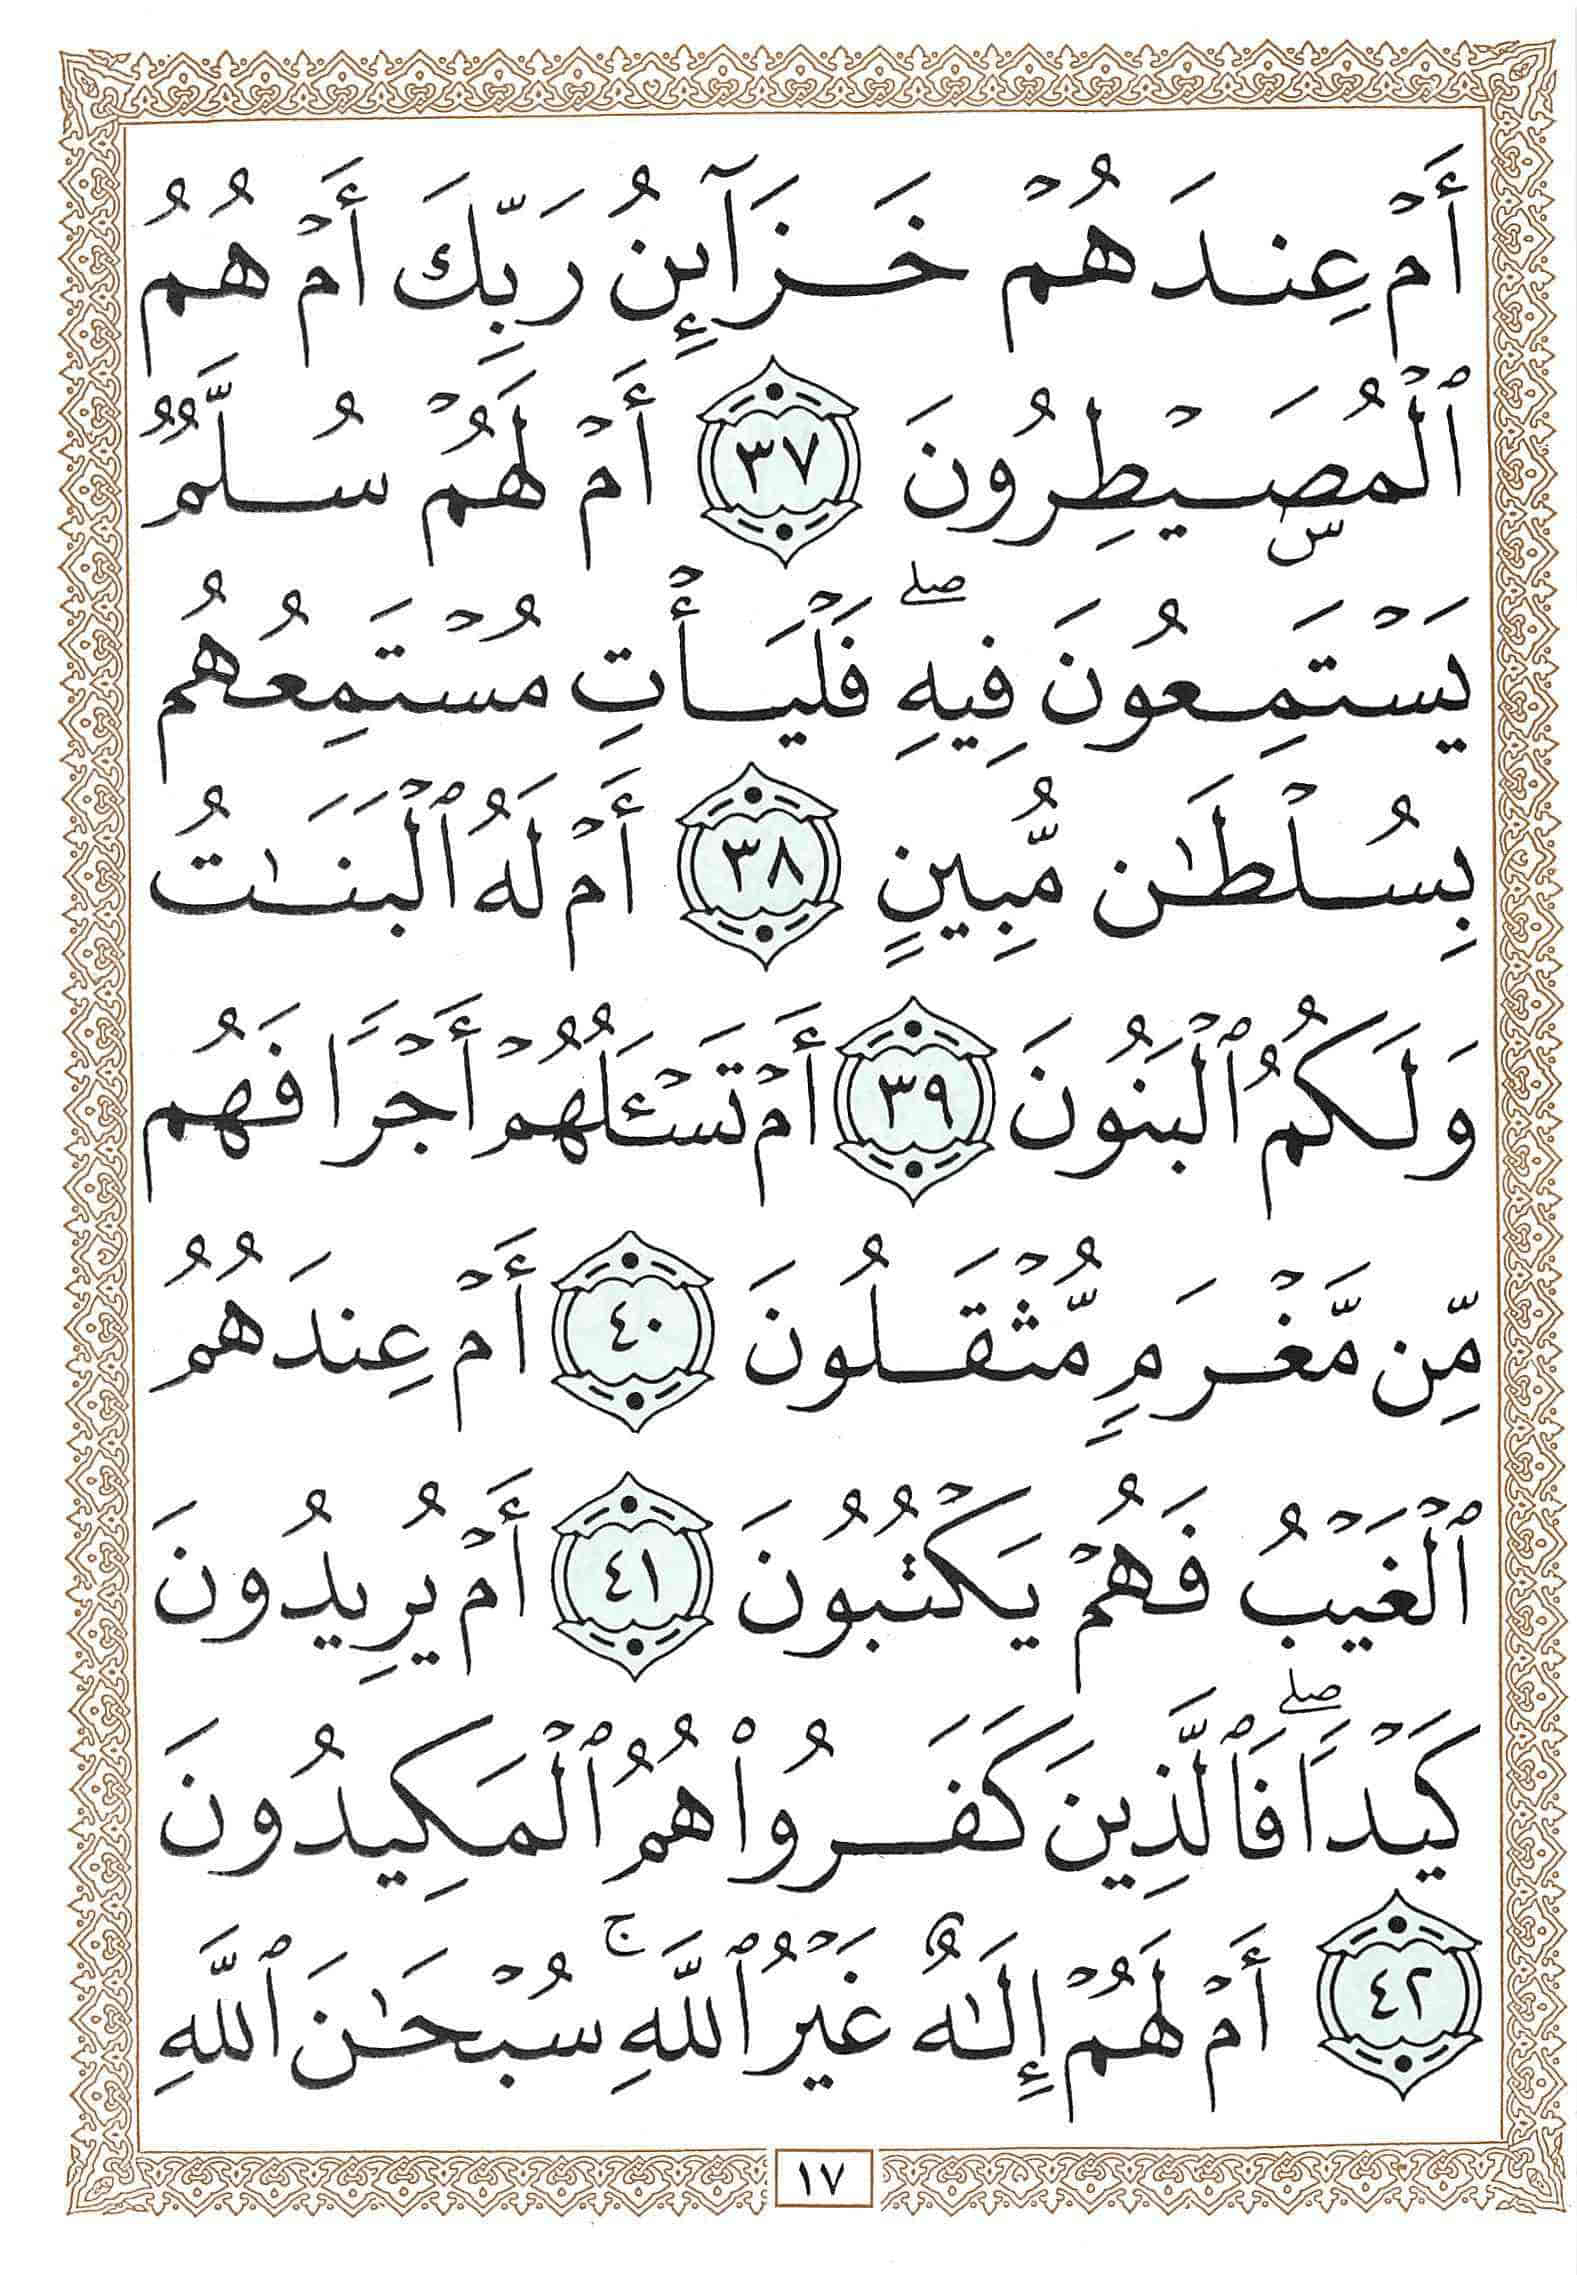 أَمْ عِندَهُمْ خَزَآئِنُ رَبِّكَ أَمْ هُمُ
ٱلْمُصَۜيْطِرُونَ ٣٧ أَمْ لَهُمْ سُلَّمٌ
يَسْتَمِعُونَ فِيهِ ۖ فَلْيَأْتِ مُسْتَمِعُهُم
بِسُلْطَٰنٍ مُّبِينٍ ٣٨ أَمْ لَهُ ٱلْبَنَٰتُ
وَلَكُمُ ٱلْبَنُونَ ٣٩ أَمْ تَسْـَٔلُهُمْ أَجْرًا فَهُم
مِّن مَّغْرَمٍ مُّثْقَلُونَ ٤٠ أَمْ عِندَهُمُ
ٱلْغَيْبُ فَهُمْ يَكْتُبُونَ ٤١ أَمْ يُرِيدُونَ
كَيْدًا ۖ فَٱلَّذِينَ كَفَرُوا۟ هُمُ ٱلْمَكِيدُونَ
٤٢ أَمْ لَهُمْ إِلَٰهٌ غَيْرُ ٱللَّهِ ۚ سُبْحَٰنَ ٱللَّهِ
١٧